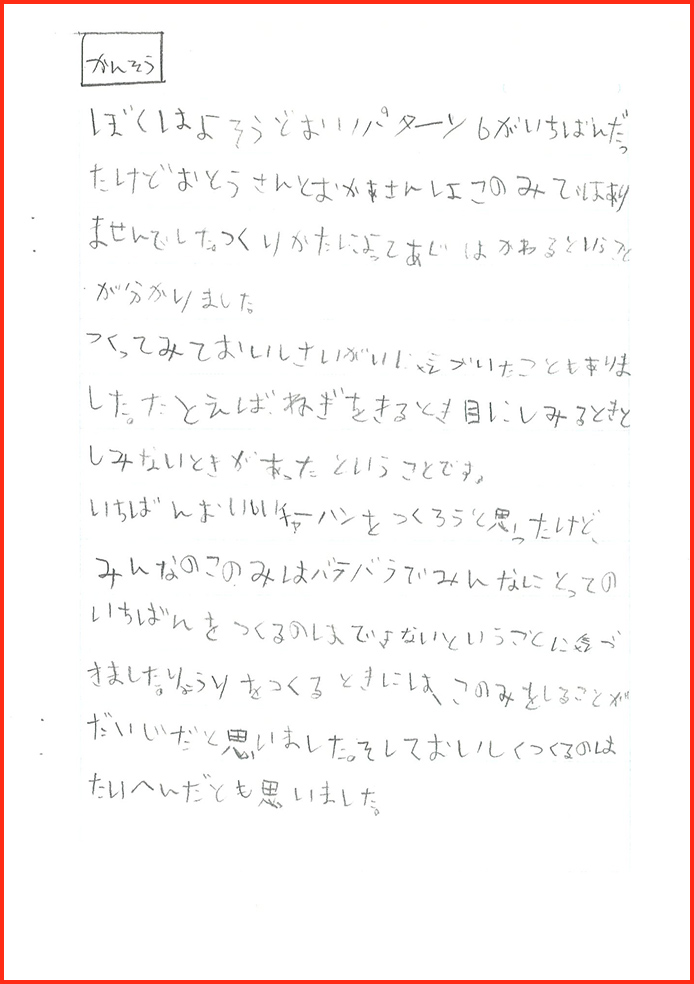 かんそう
ぼくはよそうどおりパターン6がいちばんだっ
たけどおとうさんとおかあさんはこのみではあり
ませんでした。つくりかたによってあじはかわるということ
が分かりました
つくってみておいしさいがいに気づいたこともありま
した。たとえばねぎをきるとき目にしみるときと
しみないときがあったということです。
いちばんおいしいチャーハンをつくろうと思ったけど、
みんなのこのみはバラバラでみんなにとっての
いちばんをつくるのはできないということに気づ
きました。りょうりをつくるときには、このみをしることが
だいじだと思いました。そしておいしくつくるのは
たいへんだとも思いました。